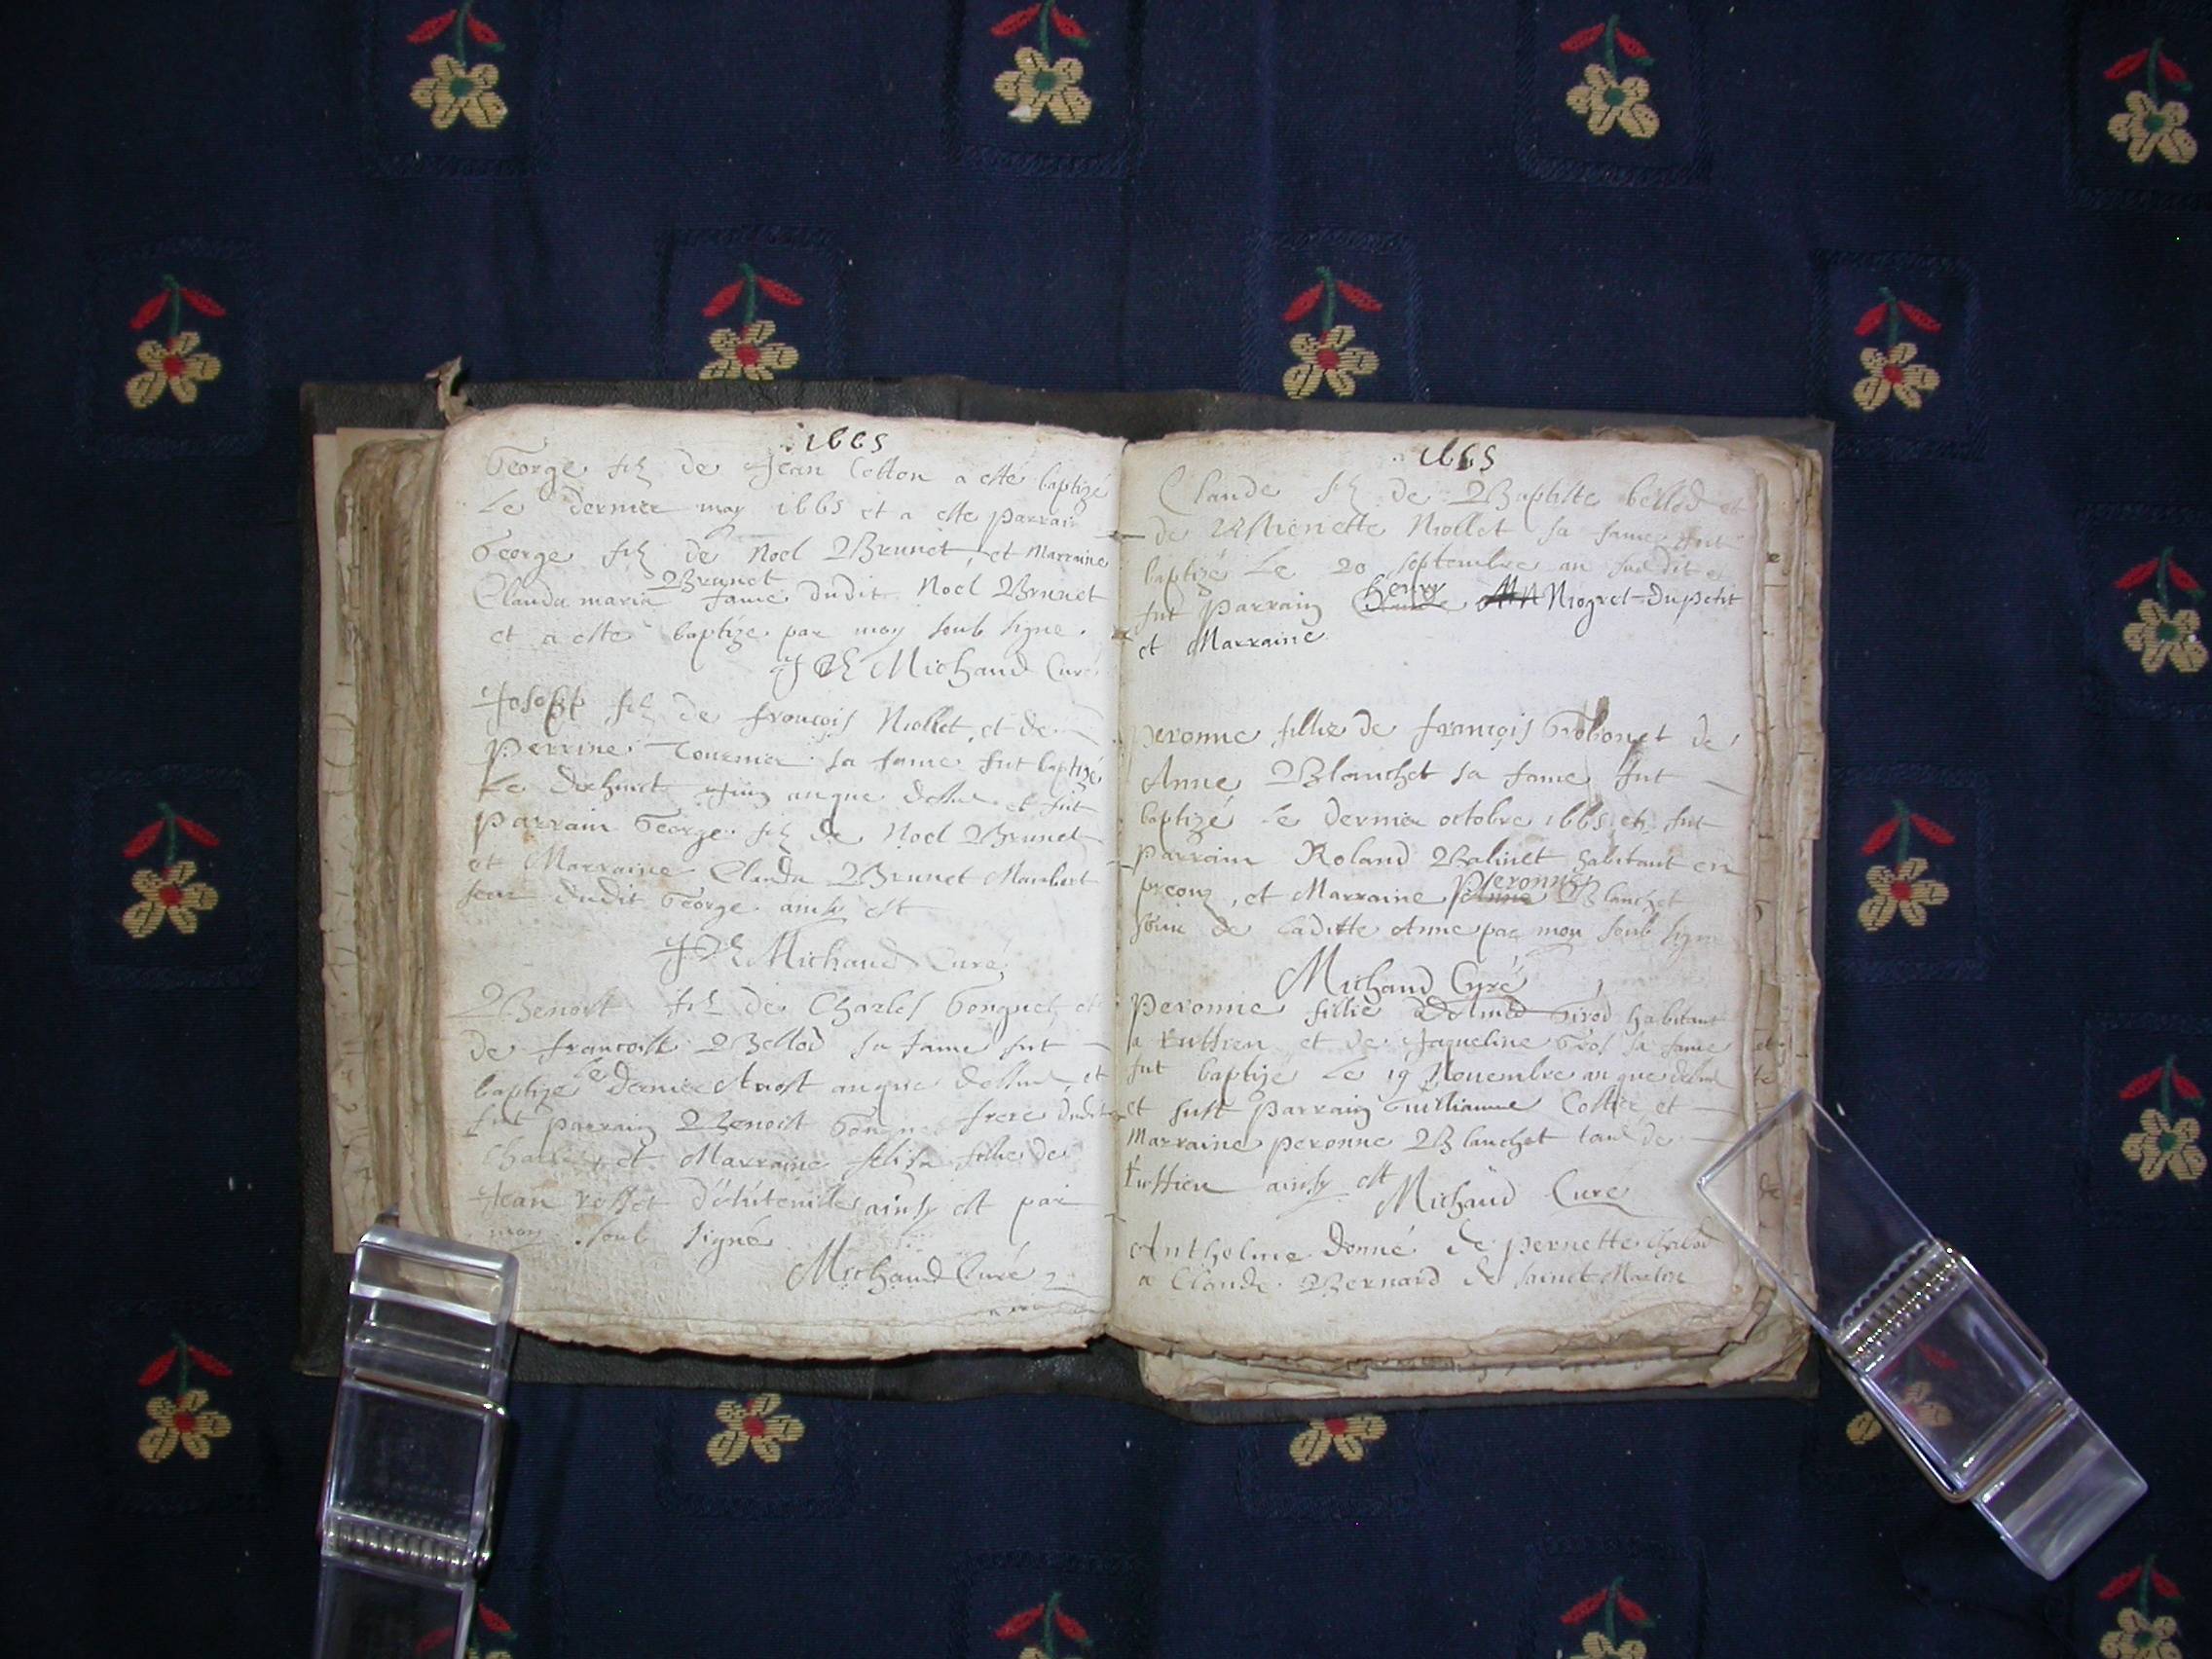 1665
George filz de Jean Cotton a esté baptizé
Le dernier may 1665 et a este parrain
George filz de Noel Brunet et Marraine
Clauda maria Brunet fame dudit Noel Brunet
et a esté baptize par moy soub signe.
Michaud Curé
Joseph filz de françois Niollet et de
Perrine Tournier sa fame fut baptizé
Le dixhuict Juin an que dessus et fut
parrain George filz de Noel Brunet
et Marraine Clauda Brunet Mambert
seur dudit George ainsy est
Michaud Curé
Benoist filz de Charles Gonguet et
de francoise Bellod sa fame fut
baptize le dernier Aoust an que dessus et
fut parrain Benoist frere dudit
Charles et Marraine felise fillie de
Jean rosset ainsy est par
moy soub signé
Michaud Curé
1665
Claude filz de Baptiste bellod et
de Estienette Niollet sa fame fut
baptizé Le 20 septembre an susdit et
fut parrain henry Niogret Dupetit
et Marraine
peronne fillie de françois de
Anne Blanchet sa fame fut
baptizé le dernier octobre 1665 et fut
parrain Roland Balivet habitant en
preouz, et Marraine Peronne Blanchet
seur de Laditte Anne par moy soub signe
Michaud Curé
Peronne fillie Girod habitant
a et de Jaqueline Gros sa fame
fut baptize Le 19 Novembre an que dessus
et fust parrain Guilliaume Costie et
Marraine peronne Blanchet tous de
ainsy est
Michaud Curé
Antholine donné de pernette
a Claude Bernard de sainct Martin